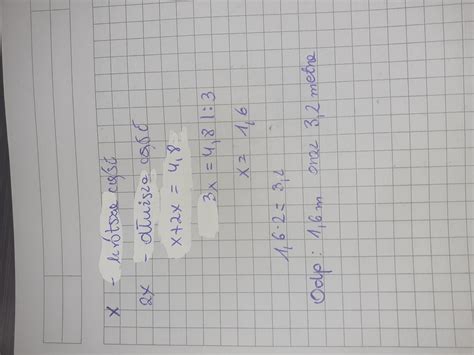 x - krótsza część
2x - dłuższa część
x+2x = 4,8
3x = 4,8 |:3
x = 1,6
1,6·2 = 3,2
Odp: 1,6 m oraz 3,2 metra